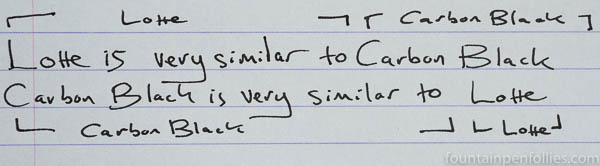 Lotte Carbon Black
Lotte is very similar to Carbon Black
Carbon Black is very similar to Lotte
Carbon Black Lotte
fountainpenfollies.com